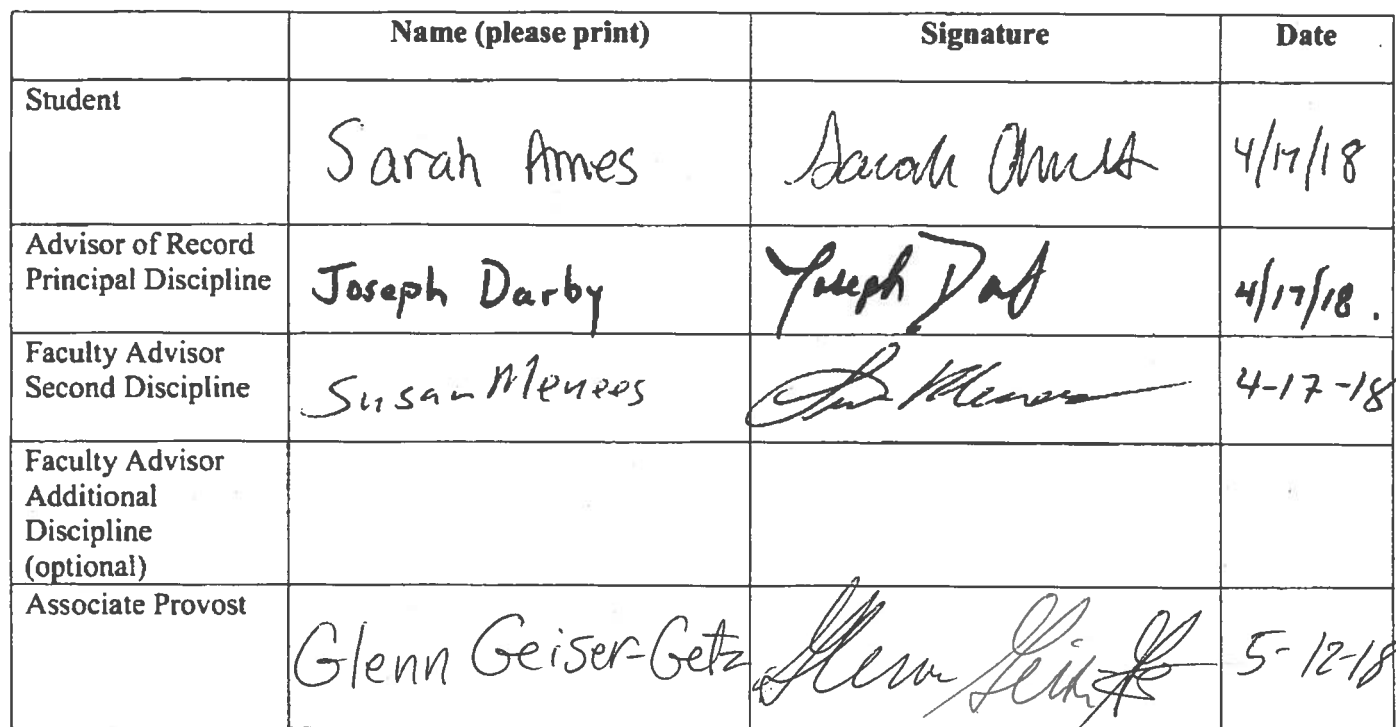 Name (please print) Signature Date
Student
Sarah Ames Sarah Ames 4/17/18
Advisor of Record
Principal Discipline Joseph Darby Joseph Darby 4/17/18.
Faculty Advisor
Second Discipline Susan Menees 4-17-18
Faculty Advisor
Additional
Discipline
(optional)
Associate Provost
Glenn Geiser-Getz Glenn Geiser-Getz 5-12-18